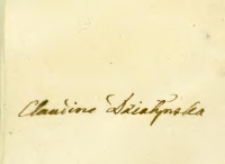 Claudine Działyńska